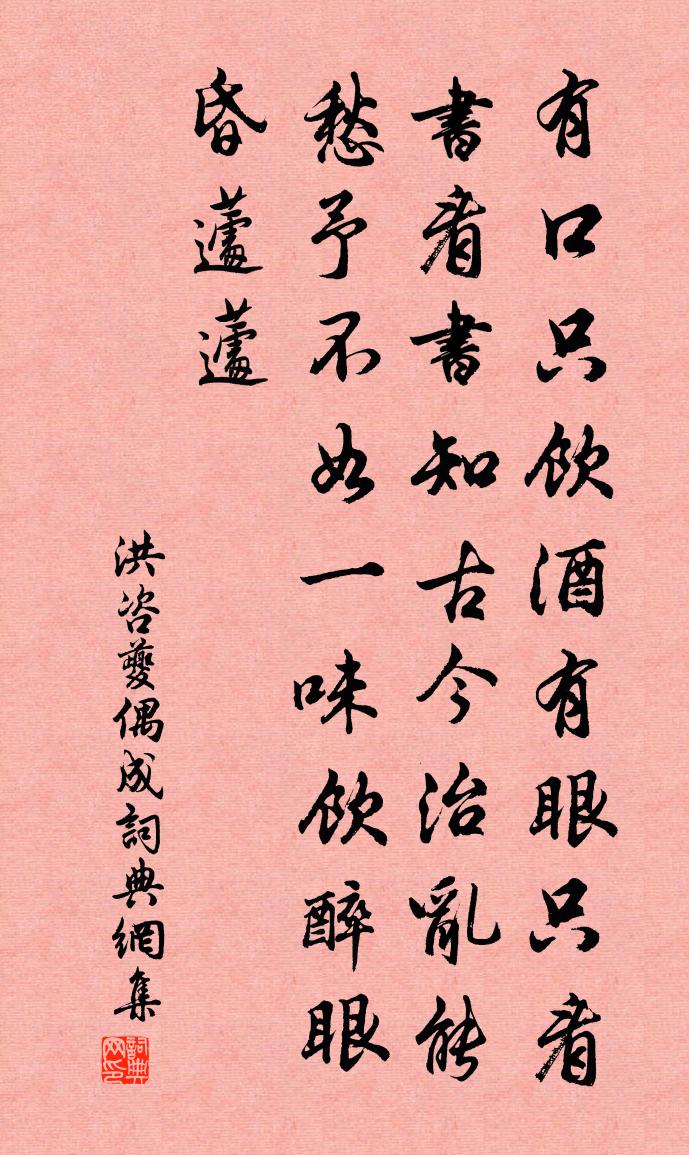 有口只飲酒有眼只看
書看書知古今治亂能
愁予不如一味飲醉眼
昏蘧蘧
洪咨夔偶成詞典網集
詞典网印